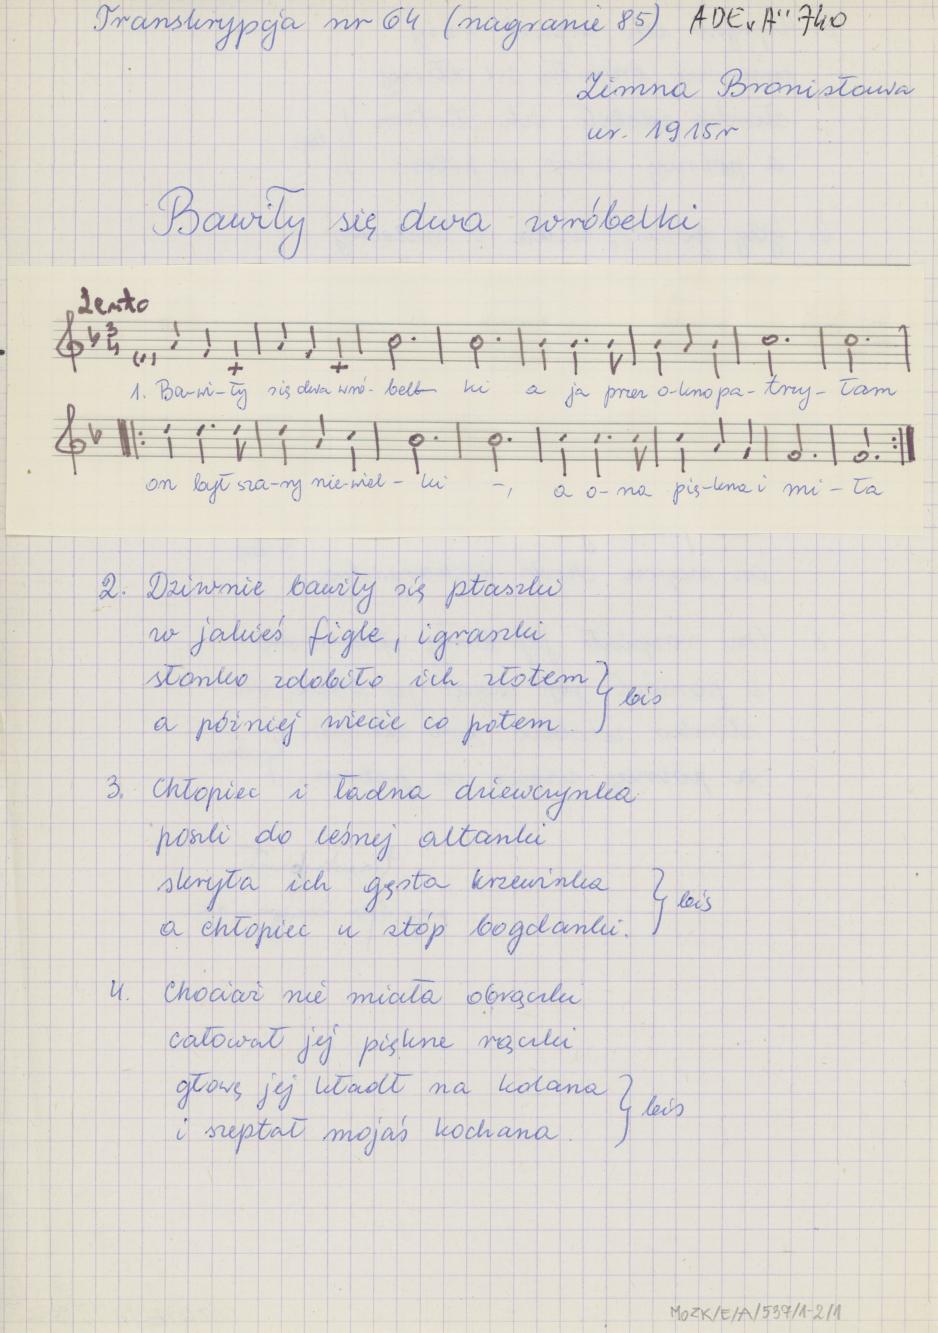 Transkrypcja nr 64 (nagranie 85) ADE „A" 740
Zimna Bronisława
ur. 1915r
Bawiły się dwa wróbelki
Lento
1. Ba-wi-ły się dwa wró-bel- ki a ja przez o-kno pa-trzy-łam
on był sza-ry nie-wiel-ki -, a o-na pię-kna i mi-ła
2. Dziwnie bawiły się ptaszki
w jakieś figle, igraszki
słonko zdobiło ich złotem } bis
a później wiecie co potem.
3. Chłopiec i ładna dziewczynka
poszli do leśnej altanki
skryła ich gęsta krzewinka } bis
a chłopiec u stóp bogdanki.
4. Chociaż nie miała obrączki
całował jej piękne rączki
głowę jej kładł na kolana } bis
i szeptał mojaś kochana.
MOZK/E/A/537/1-2/1